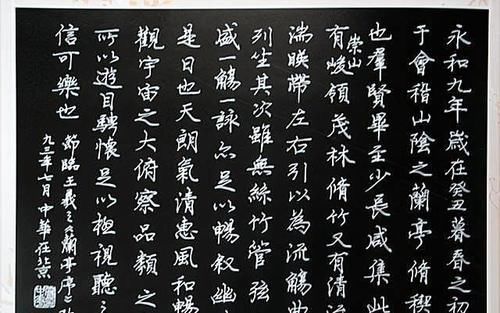 永和九年歲在癸丑暮春之初
于會稽山陰之蘭亭脩稧
也羣賢畢至少長咸集此
有崇山峻領茂林脩竹又有清流
湍暎帶左右引以為流觴曲
列坐其次雖無絲竹管弦
盛一觴一詠亦足以暢叙幽
是日也天朗氣清惠風和暢
觀宇宙之大俯察品類之
所以遊目騁懷足以極視聽之
信可樂也
節臨王羲之蘭亭序
九三年七月中華任